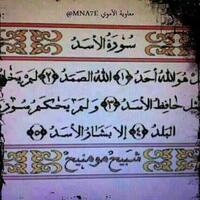 معاوية الأموي @MNA7E
سورة الأسد
هو الله أحد ﴿١﴾ الله الصمد ﴿٢﴾ لم
حافظ الأسد ﴿٣﴾ ولم يحكم
البلد ﴿٤﴾ إلا بشار الأسد ﴿٥﴾
شبيح مو منيح